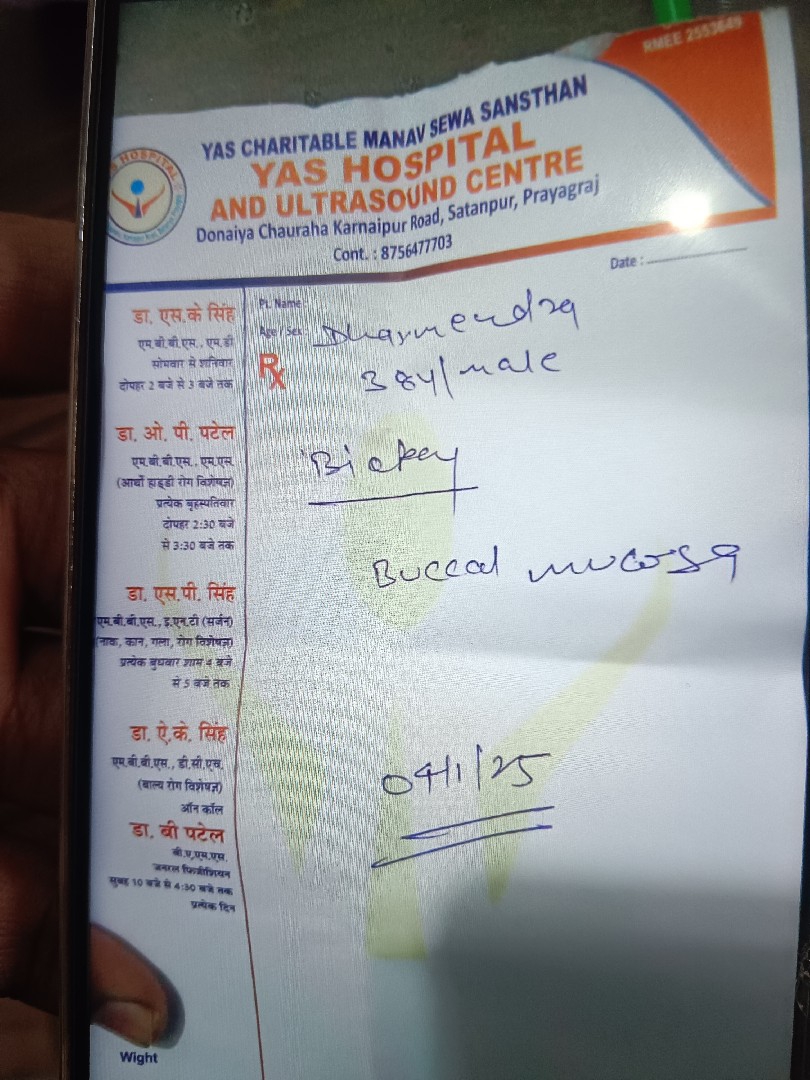 RMEE 2553649
YAS CHARITABLE MANAV SEWA SANSTHAN
YAS HOSPITAL
AND ULTRASOUND CENTRE
Donaiya Chauraha Karnaipur Road, Satanpur, Prayagraj
Cont. : 8756477703
Date :
Pt. Name
Age / Sex
Dharmendra
Rx
38y/male
Biopsy
Buccal mucosa
04/1/25
डा. एस.के सिंह
एम.बी.बी.एस., एम.डी
सोमवार से शनिवार
दोपहर 2 बजे से 3 बजे तक
डा. ओ. पी. पटेल
एम.बी.बी.एस., एम.एस.
(आर्थो हाड्डी रोग विशेषज्ञ)
प्रत्येक बृहस्पतिवार
दोपहर 2:30 बजे
से 3:30 बजे तक
डा. एस.पी. सिंह
एम.बी.बी.एस., इ.एन.टी (सर्जन)
(नाक, कान, गला, रोग विशेषज्ञ)
प्रत्येक बुधवार शाम 4 बजे
से 5 बजे तक
डा. ऐ.के. सिंह
एम.बी.बी.एस., डी.सी.एच.
(बाल्य रोग विशेषज्ञ)
ऑन कॉल
डा. बी पटेल
बी.ए.एम.एस.
जनरल फिजीशियन
सुबह 10 बजे से 4:30 बजे तक
प्रत्येक दिन
Wight